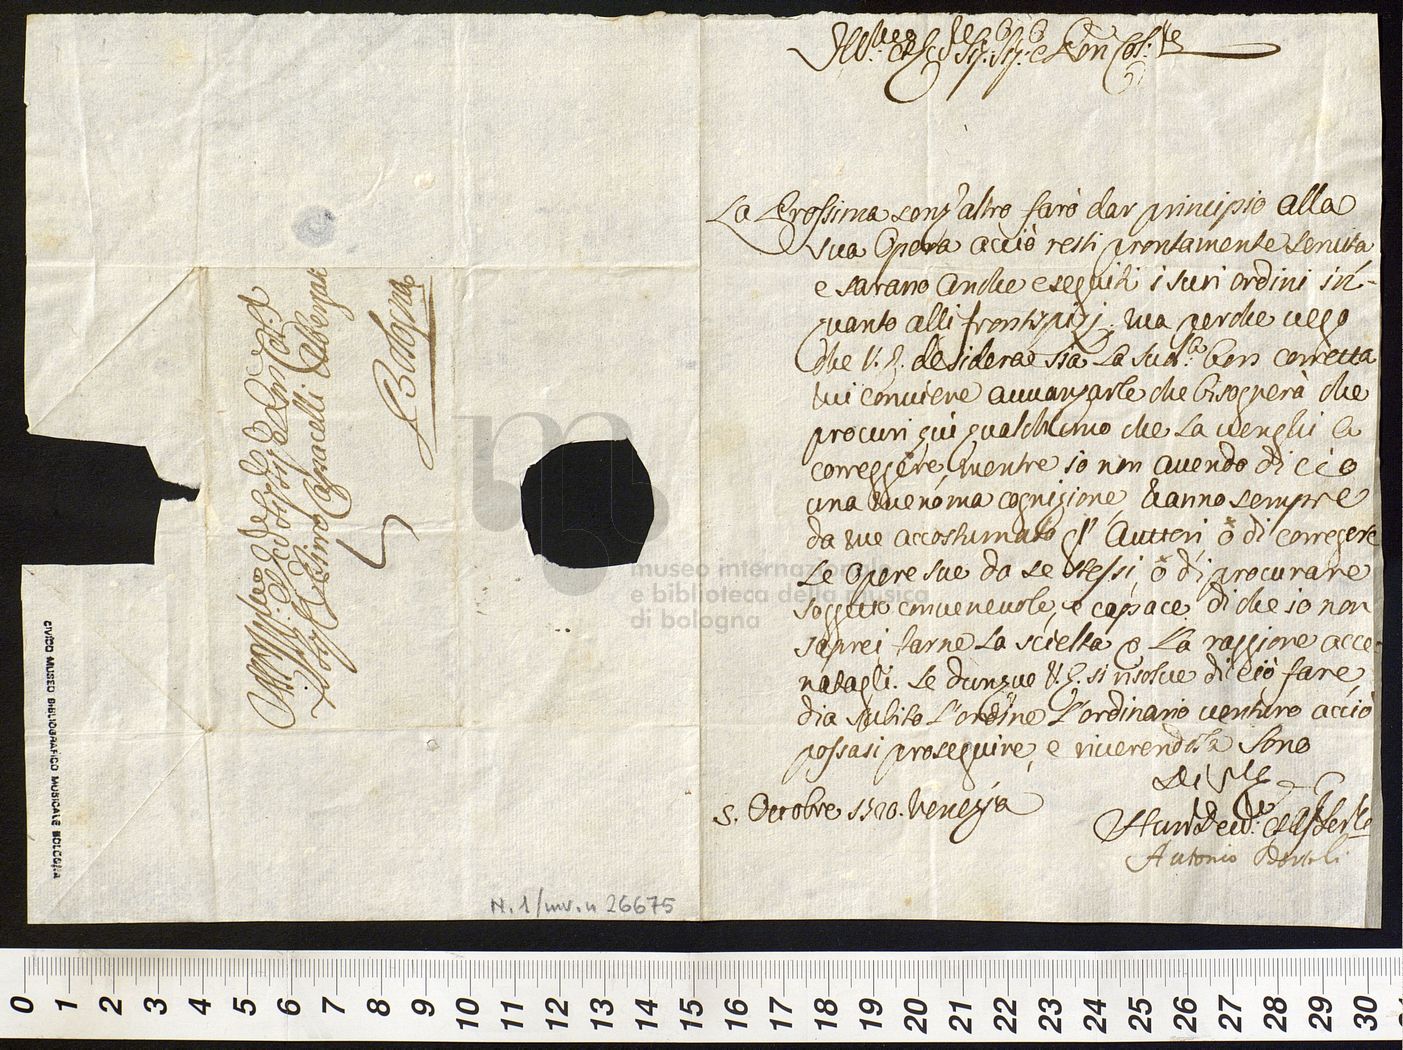 La Prossima senz'altro farò dar principio alla
sua Opera acciò resti prontamente servita
e sarano anche eseguiti i suoi ordini in-
quanto alli frontispizj. ma perche vego
che V. S. desidera essia La sud.ta ben corretta
mi conviene avvanzarle che bisognerà che
procuri qui qualchuno che La venghi a
correggere, mentre io non avendo di ciò
una menoma cognizione, hanno sempre
da me accostumato gl' Auttori ò di corregere
Le Opere sue da se stessi, ò di procurare
soggetto convenevole, e capace, di che io non
saprei farne La scielta p La raggione acce-
natagli. Se dunque V. S. si risolve di ciò fare
dia subito L'ordine L'ordinario venturo acciò
possasi proseguire, e riverendola sono
Di V. S.
5. Ottobre Venezia
Antonio Bortoli
Pirro Capacelli Albergati
Bologna
N. 1/inv. n 26675
CIVICO MUSEO BIBLIOGRAFICO MUSICALE BOLOGNA
museo internazionale
e biblioteca della musica
di bologna
0 1 2 3 4 5 6 7 8 9 10 11 12 13 14 15 16 17 18 19 20 21 22 23 24 25 26 27 28 29 30